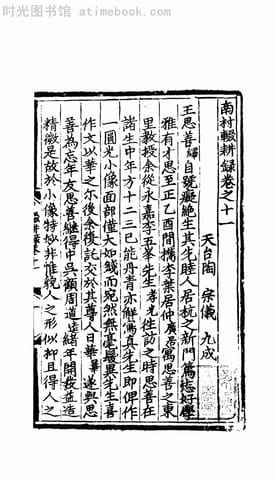 时光图书馆 - atimebook.com
南村輟耕録卷之十一
天台陶 宗儀 九成
王思善繹自號癡絶生其先睦人居杭之新門篤志好學
雅有才思至正乙酉間檇李葉居仲廣居寓思善之東
里教授余從永嘉李五峯先生孝光徃訪之時思善在
諸生中年方十二三已能丹青亦解寫真先生即俾作
一圓光小像面部僅大如錢而宛然無毫髮異先生喜
作文以華之尔後余復託交於其尊人日華曄遂與思
善為忘年友思善繼得中呉顧周道逵緒年開發益造
精微是故於小像特妙非惟貌人之形似抑且得人之